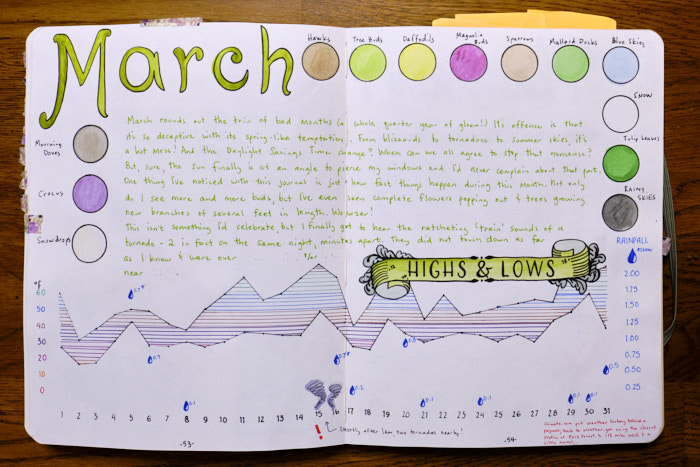 March
Hawks
Tree Buds
Daffodils
Magnolia
Buds
Sparrows
Mallard Ducks
Blue Skies
Snow
Tulip Leaves
Rainy
Skies
Mourning
Doves
Crocus
Snowdrops
March rounds out the trio of bad months (a whole quarter year of gloom!) It's offense is that
it's so deceptive with its spring-like temptations. From blizzards to tornadoes to summer skies, it's
a hot mess! And the Daylight Savings Time change? When can we all agree to stop that nonsense?
But, sure, the sun finally is at an angle to pierce my windows and I'd never complain about that part.
One thing I've noticed with this journal is just how fast things happen during this month. Not only
do I see more and more buds, but I've even seen complete flowers popping out & trees growing
new branches of several feet in length. Wowzer!
This isn't something I'd celebrate, but I finally got to hear the ratcheting 'train' sounds of a
tornado - 2 in fact on the same night, minutes apart. They did not touch down as far
as I know & were over
near
HIGHS & LOWS
°F
60
50
40
30
20
10
0
RAINFALL
2.00
1.75
1.50
1.25
1.00
0.75
0.50
0.25
0.7
0.2
0.8
0.5
0.1
0.1
0.1
0.1
0.1
1 2 3 4 5 6 7 8 9 10 11 12 13 14 15 16 17 18 19 20 21 22 23 24 25 26 27 28 29 30 31
! shortly after 1am two tornadoes nearby!
-53-
-54-